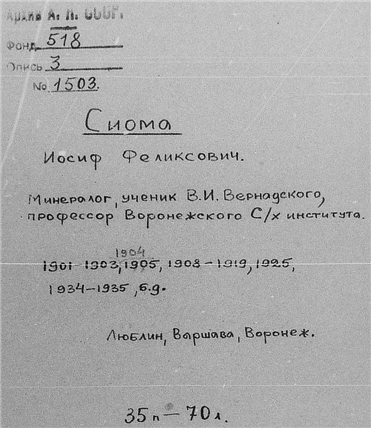 Архив А. Н. СССР.
Фонд 518
Опись 3
№ 1503.
Сиома
Иосиф Феликсович.
Минералог, ученик В.И. Вернадского,
профессор Воронежского С/х института.
1904
1901-1903, 1905, 1908-1919, 1925,
1934-1935, б.д.
Люблин, Варшава, Воронеж.
35п - 70л.